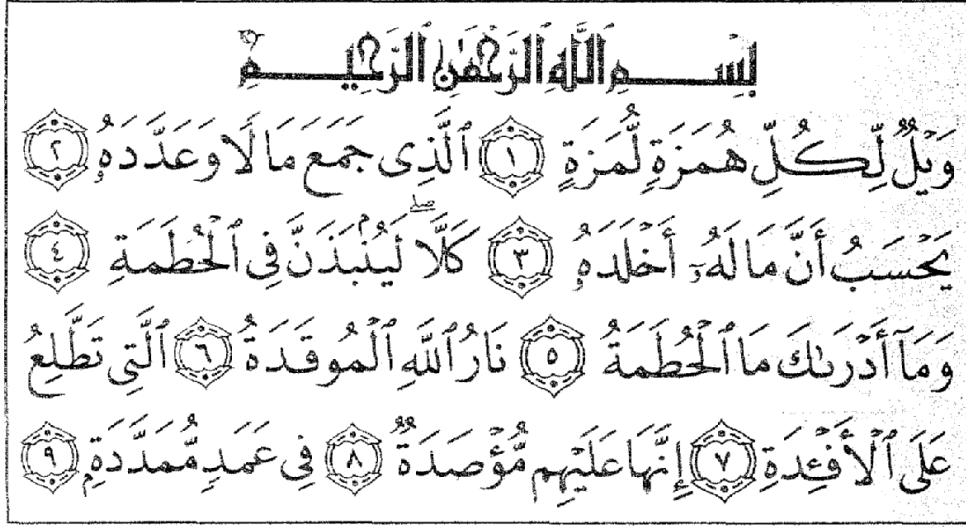 بِسْمِ ٱللَّهِ ٱلرَّحْمَٰنِ ٱلرَّحِيمِ
وَيْلٌ لِّكُلِّ هُمَزَةٍ لُّمَزَةٍ ١ ٱلَّذِى جَمَعَ مَالًا وَعَدَّدَهُۥ ٢
يَحْسَبُ أَنَّ مَالَهُۥٓ أَخْلَدَهُۥ ٣ كَلَّا ۖ لَيُنۢبَذَنَّ فِى ٱلْحُطَمَةِ ٤
وَمَآ أَدْرَىٰكَ مَا ٱلْحُطَمَةُ ٥ نَارُ ٱللَّهِ ٱلْمُوقَدَةُ ٦ ٱلَّتِى تَطَّلِعُ
عَلَى ٱلْأَفْـِٔدَةِ ٧ إِنَّهَا عَلَيْهِم مُّؤْصَدَةٌ ٨ فِى عَمَدٍ مُّمَدَّدَةٍۭ ٩